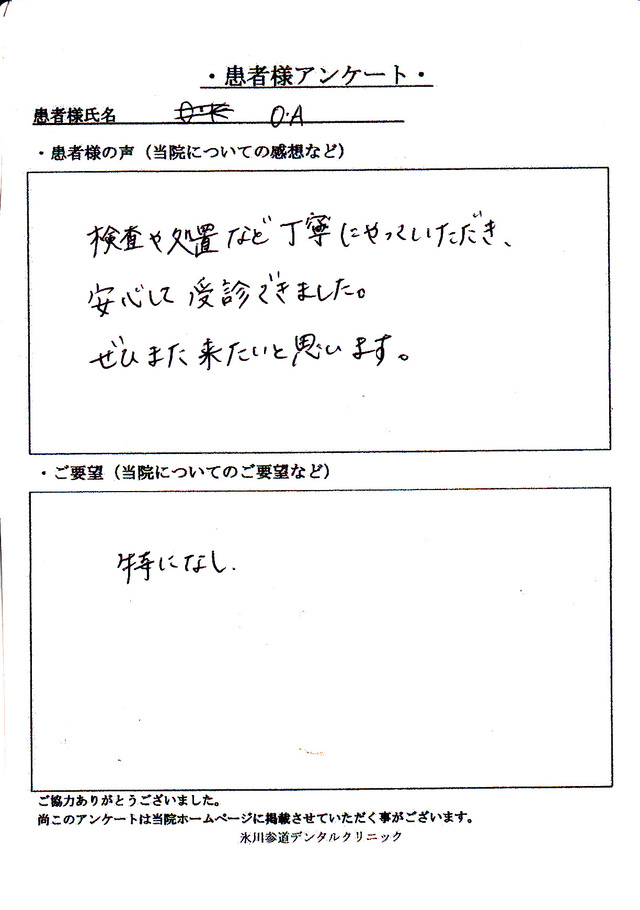 ・患者様アンケート・
患者様氏名 O.A
・患者様の声（当院についての感想など）
検査や処置など丁寧にやっていただき、
安心して受診できました。
ぜひまた来たいと思います。
・ご要望（当院についてのご要望など）
特になし.
ご協力ありがとうございました。
尚このアンケートは当院ホームページに掲載させていただく事がございます。
氷川参道デンタルクリニック